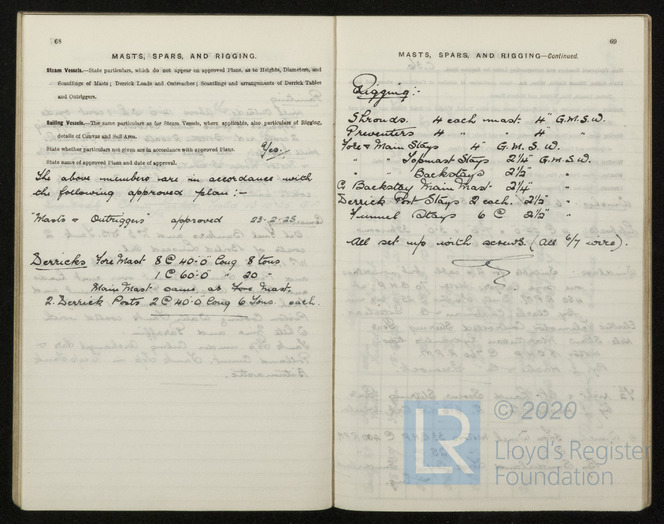 68
MASTS, SPARS, AND RIGGING.
Steam Vessels.—State particulars, which do not appear on approved Plans, as to Heights, Diameters, and
Scantlings of Masts; Derrick Loads and Outreaches; Scantlings and arrangements of Derrick Tables
and Outriggers.
Sailing Vessels.—The same particulars as for Steam Vessels, where applicable, also particulars of Rigging,
details of Canvas and Sail Area.
State whether particulars not given are in accordance with approved Plans. Yes.
State name of approved Plan and date of approval.
The above members are in accordance with
the following approved plan:-
"Masts & Outriggers" approved 23-2-25
Derricks Fore Mast 8 @ 40'.0 long 8 tons.
1 @ 60'.0 " 20 "
Main Mast - same as Fore Mast.
2. Derrick Posts 2 @ 40'.0 long 6 Tons. each.
69
MASTS, SPARS, AND RIGGING—Continued.
Rigging:-
Shrouds 4 each mast 4" G.M.S.W.
Preventers 4 " " 4" "
Fore & Main Stays 4" G.M.S.W.
" " Topmast Stays 2¼" G.M.S.W.
" " Backstays 2½" "
Backstay Main Mast 2¼" "
Derrick Post Stays 2 each. 2½" "
Funnel Stays 6 @ 2½" "
All set up with screws. (All 6/7 wire).
© 2020
LR
Lloyd's Register
Foundation